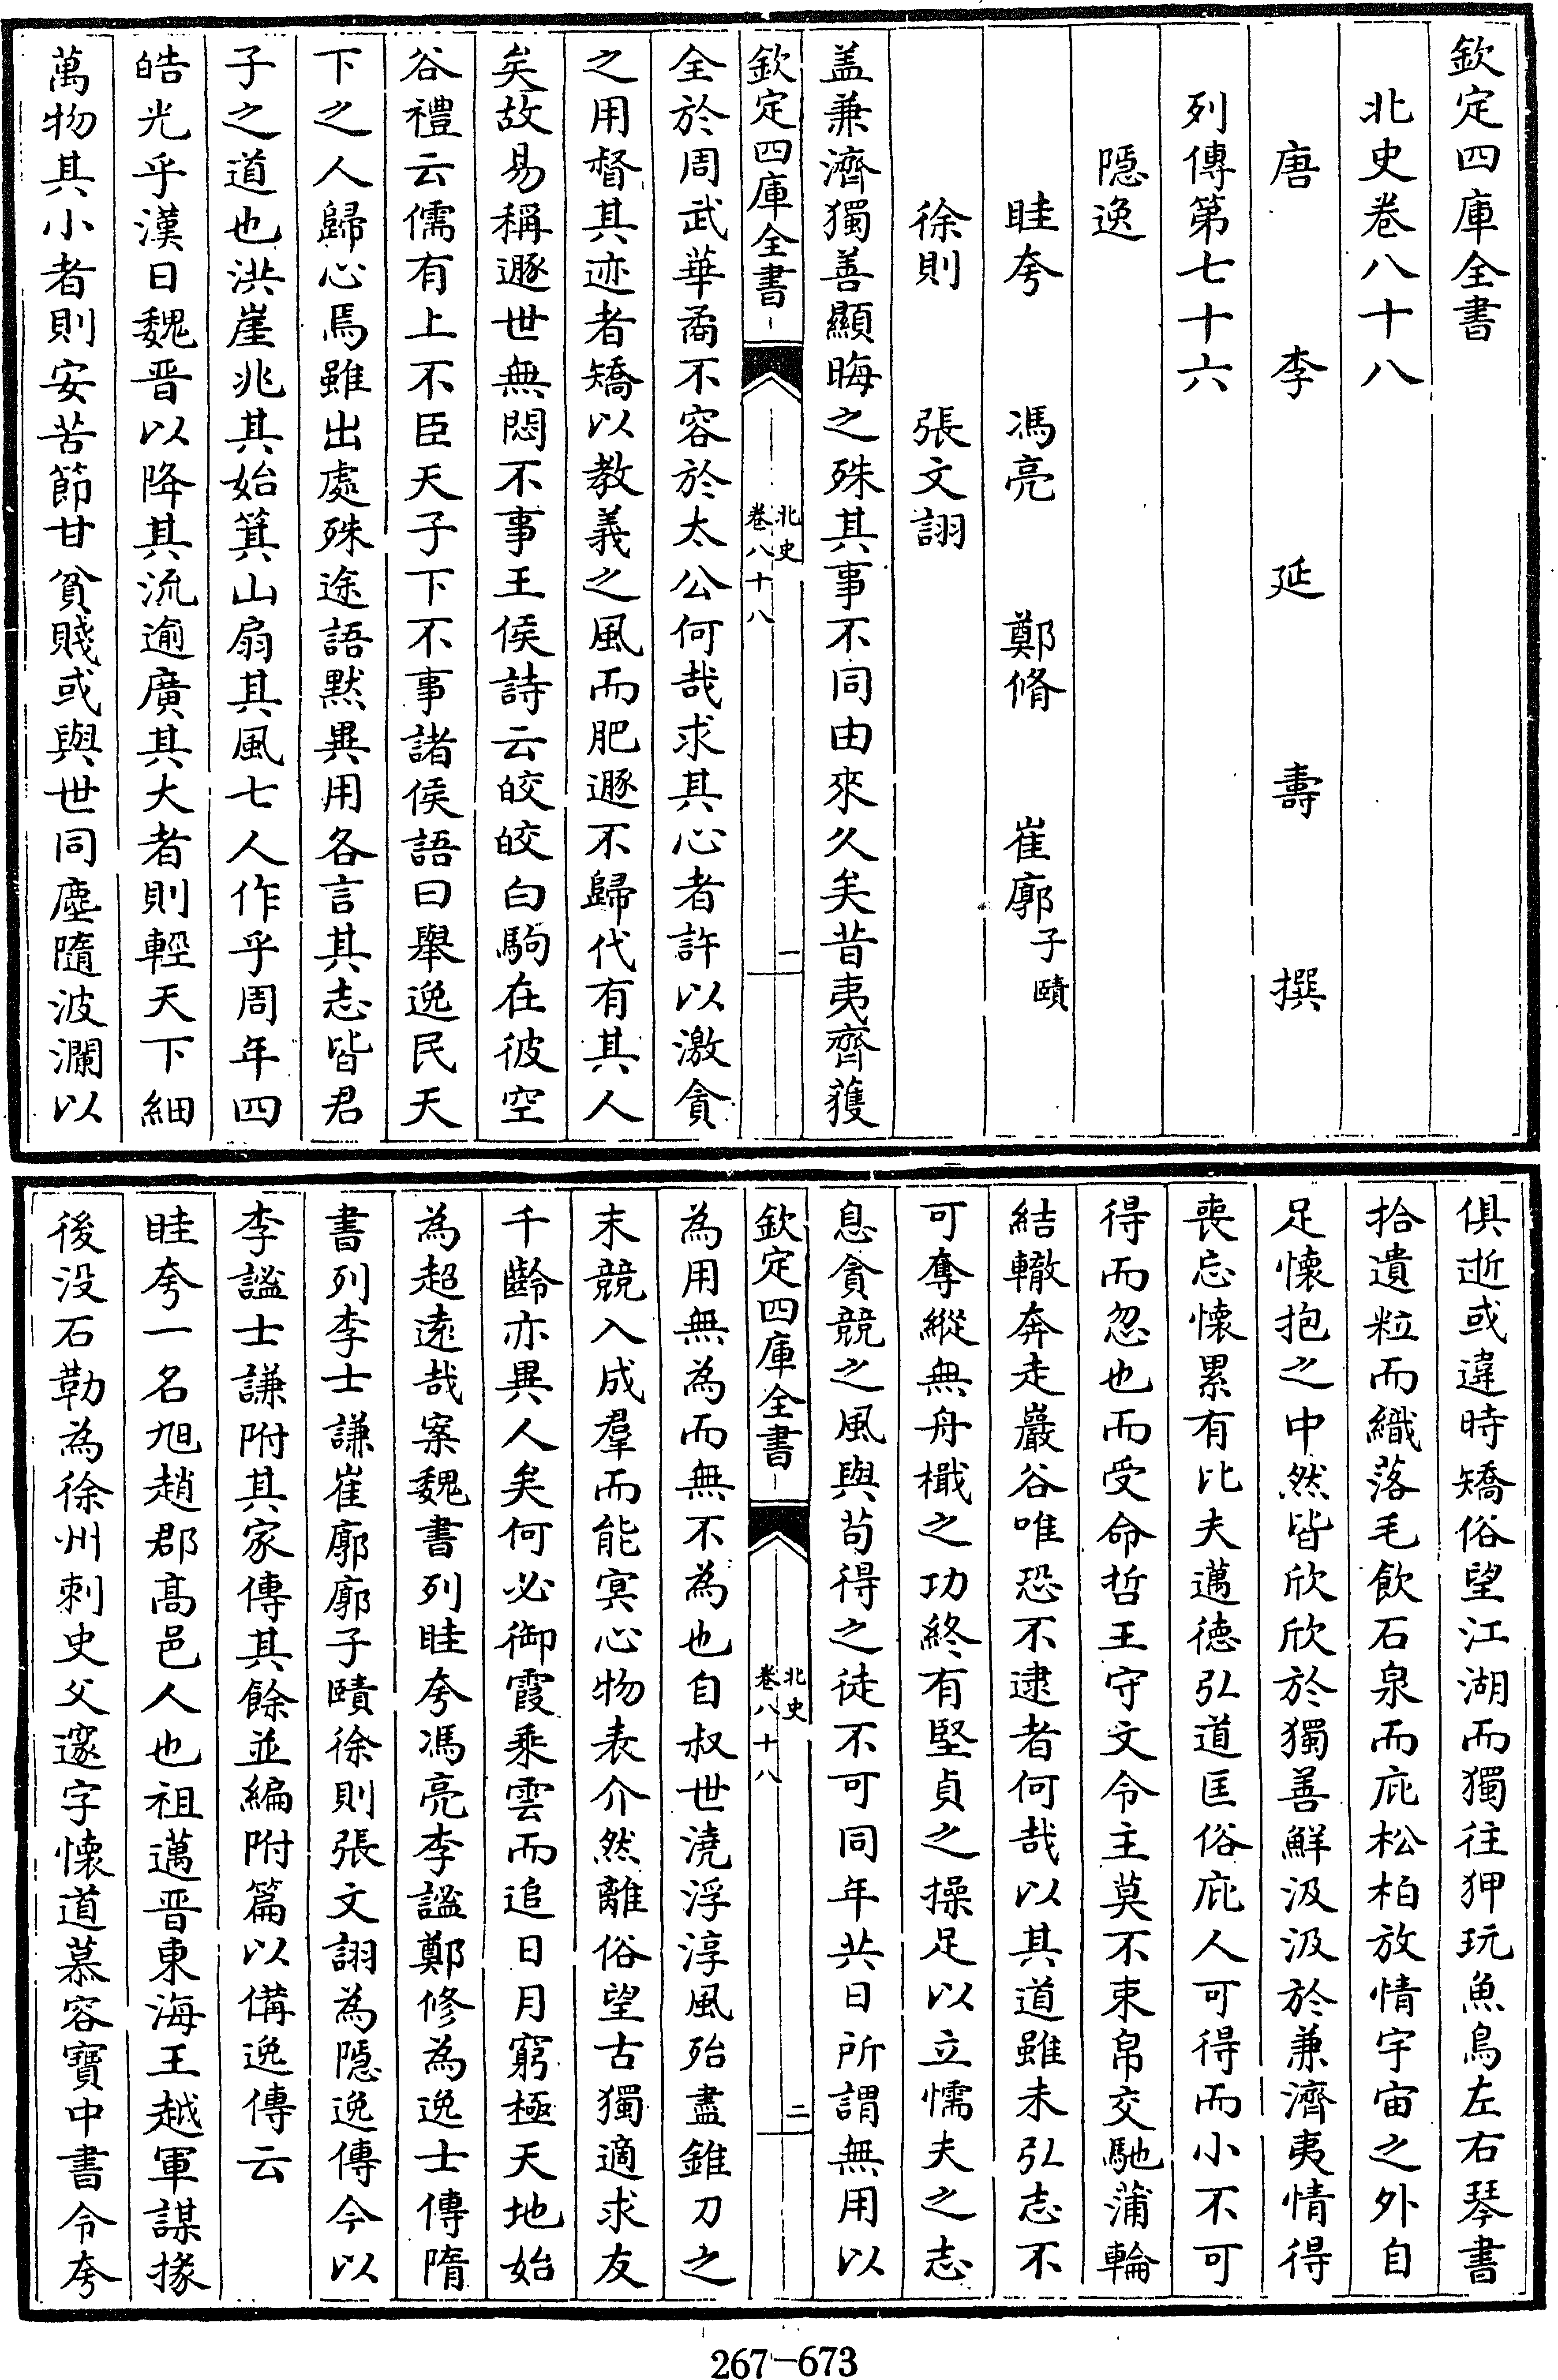 欽定四庫全書
北史卷八十八
唐李延壽撰
列傳第七十六
隱逸
眭夸 馮亮 鄭脩 崔廓子賾
徐則 張文詡
盖兼濟獨善顯晦之殊其事不同由來久矣昔夷齊獲
欽定四庫全書 北史卷八十八 一
全於周武華矞不容於太公何哉求其心者許以激貪
之用督其迹者矯以教義之風而肥遯不歸代有其人
矣故易稱遯世無悶不事王侯詩云皎皎白駒在彼空
谷禮云儒有上不臣天子下不事諸侯語曰舉逸民天
下之人歸心焉雖出處殊途語黙異用各言其志皆君
子之道也洪崖兆其始箕山扇其風七人作乎周年四
皓光乎漢日魏晋以降其流逾廣其大者則輕天下細
萬物其小者則安苦節甘貧賤或與世同塵隨波瀾以
俱逝或違時矯俗望江湖而獨往狎玩魚鳥左右琴書
拾遺粒而織落毛飲石泉而庇松柏放情宇宙之外自
足懷抱之中然皆欣欣於獨善鮮汲汲於兼濟夷情得
喪忘懷累有比夫邁徳弘道匡俗庇人可得而小不可
得而忽也而受命哲王守文令主莫不束帛交馳蒲輪
結轍奔走巖谷唯恐不逮者何哉以其道雖未弘志不
可奪縱無舟檝之功終有堅貞之操足以立懦夫之志
息貪競之風與苟得之徒不可同年共日所謂無用以
欽定四庫全書 北史卷八十八 二
為用無為而無不為也自叔世澆浮淳風殆盡錐刀之
末競入成羣而能冥心物表介然離俗望古獨適求友
千齡亦異人矣何必御霞乘雲而追日月窮極天地始
為超遠哉案魏書列眭夸馮亮李謐鄭修為逸士傳隋
書列李士謙崔廓廓子賾徐則張文詡為隱逸傳今以
李謐士謙附其家傳其餘並編附篇以備逸傳云
眭夸一名旭趙郡髙邑人也祖邁晋東海王越軍謀掾
後没石勒為徐州刺史父邃字懷道慕容寶中書令夸
267-673